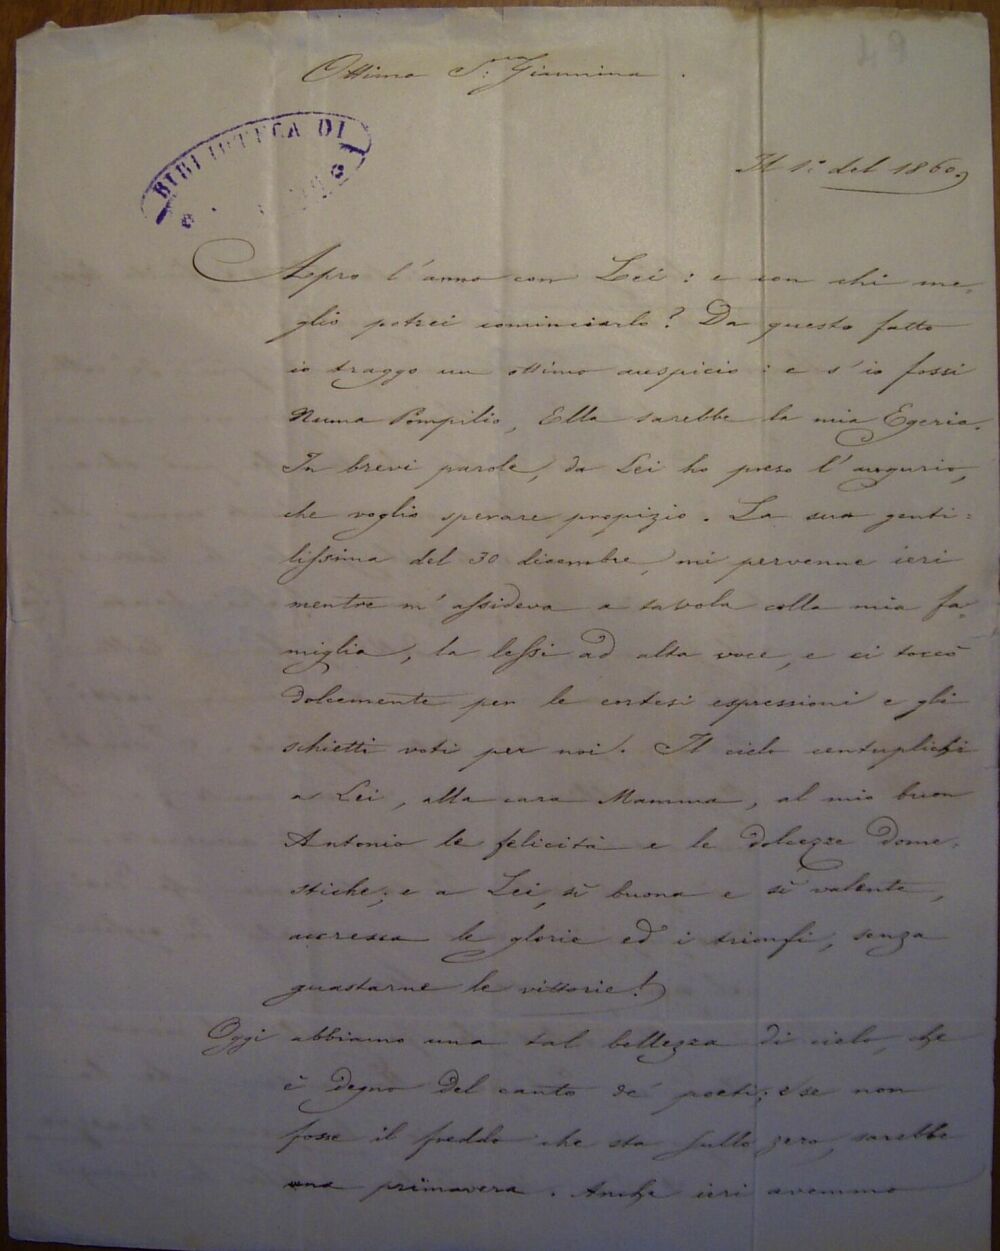 Ottima S.ra Giannina.
BIBLIOTECA DI
Il 1.° del 1860,
Apro l'anno con Lei: e con chi me-
glio potrei cominciarlo? Da questo fatto
io traggo un ottimo auspicio: e s'io fossi
Numa Pompilio, Ella sarebbe la mia Egeria.
In brevi parole, da Lei ho preso l'augurio,
che voglio sperare propizio. La sua genti-
lissima del 30 dicembre, mi pervenne ieri
mentre m'assideva a tavola colla mia fa-
miglia, la lessi ad alta voce, e ci toccò
dolcemente per le cortesi espressioni e gli
schietti voti per noi. Il cielo centuplichi
a Lei, alla cara Mamma, al mio buon
Antonio le felicità e le dolcezze dome-
stiche; e a Lei, sì buona e sì valente,
accresca le glorie ed i trionfi, senza
guastarne le vittorie!
Oggi abbiamo una tal bellezza di cielo, che
è degno del canto de' poeti; e se non
fosse il freddo che sta sullo zero, sarebbe
una primavera. Anche ieri avemmo